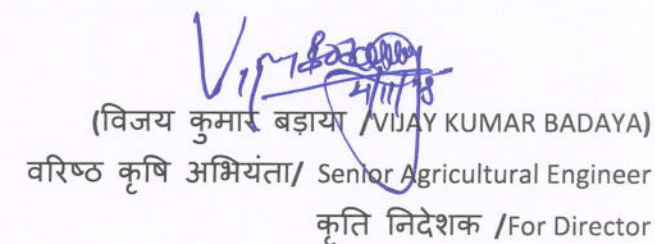 4/11/18
(विजय कुमार बड़ाया /VIJAY KUMAR BADAYA)
वरिष्ठ कृषि अभियंता/ Senior Agricultural Engineer
कृति निदेशक /For Director